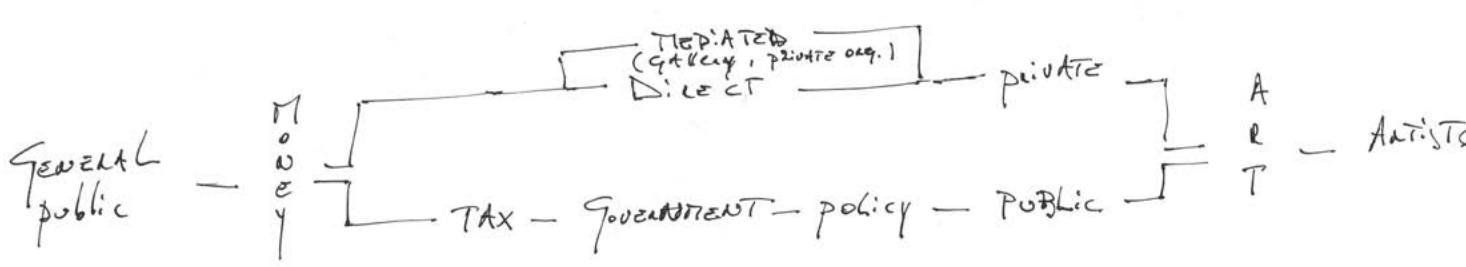 GENERAL
public
MONEY
MEDIATED
(GALLERY, PRIVATE ORG.)
DIRECT
PRIVATE
TAX – GOVERNMENT – POLICY – PUBLIC
ART
ARTISTS